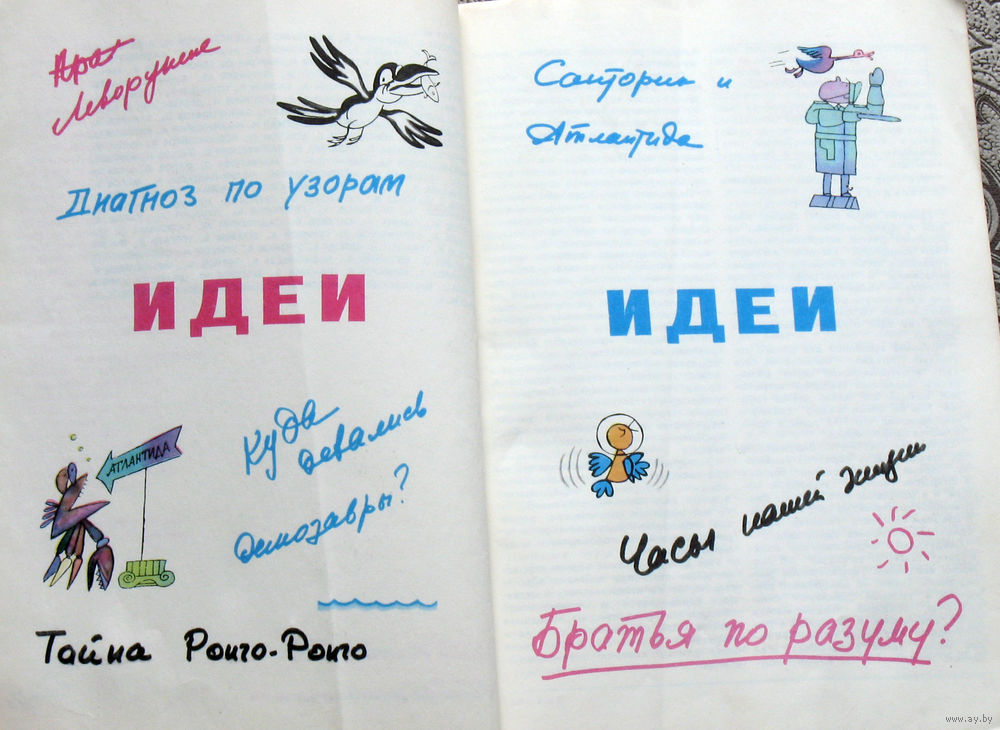 Леворукие
Диагноз по узорам
ИДЕИ
АТЛАНТИДА
Куда
девались
динозавры?
Тайна Ронго-Ронго
Санторин и
Атлантида
ИДЕИ
Часы нашей жизни
Братья по разуму?
www.ay.by